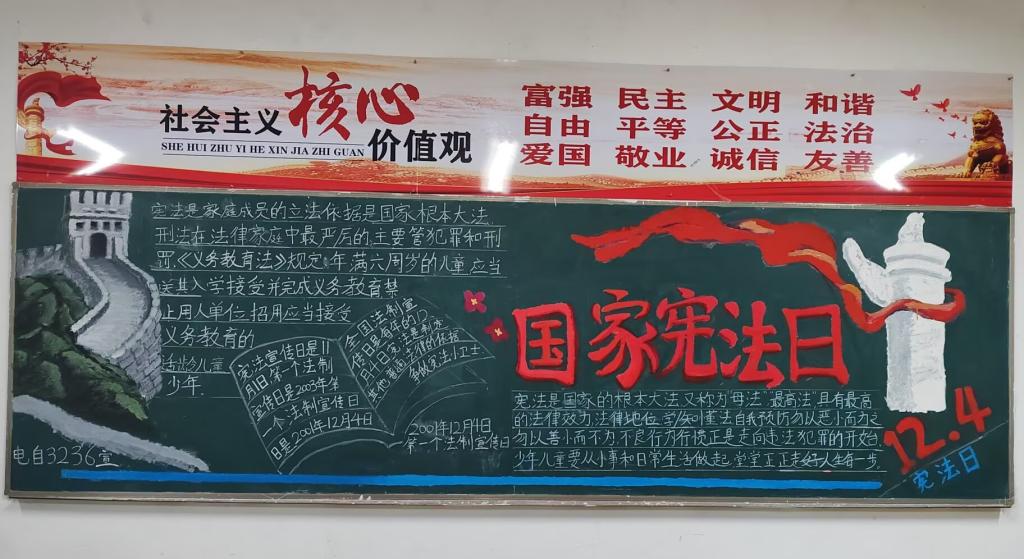 社会主义核心价值观
SHE HUI ZHU YI HE XIN JIA ZHI GUAN
富强 民主 文明 和谐
自由 平等 公正 法治
爱国 敬业 诚信 友善
宪法是家庭成员的立法依据是国家根本大法
刑法在法律家庭中最严厉的,主要管犯罪和刑
罚《义务教育法》规定:年满六周岁的儿童应当
送其入学接受并完成义务教育禁
止用人单位招用应当接受
义务教育的
适龄儿童
少年.
宪法宣传日是11
月1日第一个法制
宣传日是2003年第
一个法制宣传日
是2001年12月4日
全国法制宣
传日是每年的12
月4日宪法是制定
其他普通法律的依据
争做宪法小卫士
2001年12月4日
第一个法制宣传日
电自3236宣
国家宪法日
宪法是国家的根本大法又称为"母法""最高法"具有最高
的法律效力,法律地位,学知懂法自我预防勿以恶小而为之
勿以善小而不为,不良行为行惯正是走向违法犯罪的开始,
少年儿童要从小事和日常生活做起,堂堂正正走好人生每一步.
12.4
宪法日